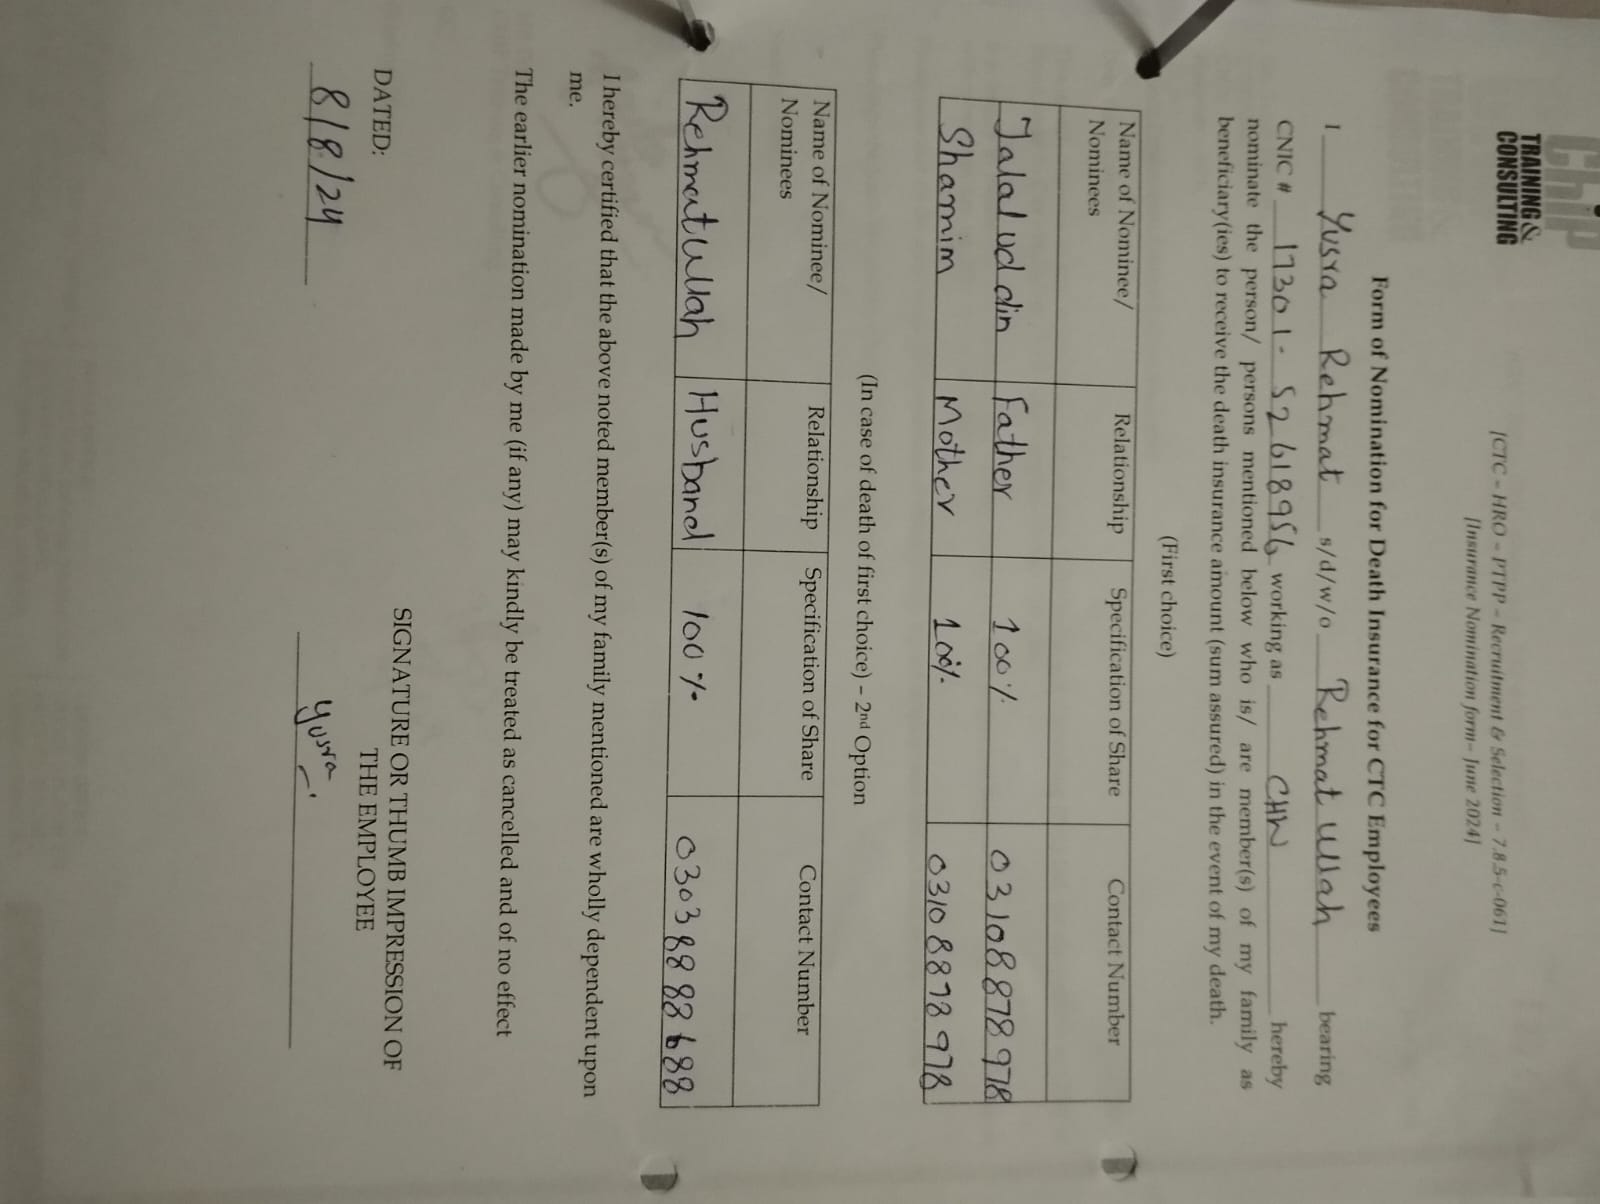 Chip
TRAINING &
CONSULTING
[CTC – HRO – PTPP – Recruitment & Selection – 7.8.5-c-061]
[Insurance Nomination form– June 2024]
Form of Nomination for Death Insurance for CTC Employees
I Yusra Rehmat s/d/w/o Rehmat ullah bearing
CNIC # 17301-5261895-6 working as CHW hereby
nominate the person/ persons mentioned below who is/ are member(s) of my family as
beneficiary(ies) to receive the death insurance amount (sum assured) in the event of my death.
(First choice)
Name of Nominee/ Nominees Relationship Specification of Share Contact Number
Jalal ud din Father 100% 03108878978
Shamim Mother 100% 03108878978
(In case of death of first choice) – 2nd Option
Name of Nominee/ Nominees Relationship Specification of Share Contact Number
Rehmatullah Husband 100% 03038888688
I hereby certified that the above noted member(s) of my family mentioned are wholly dependent upon
me.
The earlier nomination made by me (if any) may kindly be treated as cancelled and of no effect
DATED:
8/8/24
SIGNATURE OR THUMB IMPRESSION OF
THE EMPLOYEE
Yusra